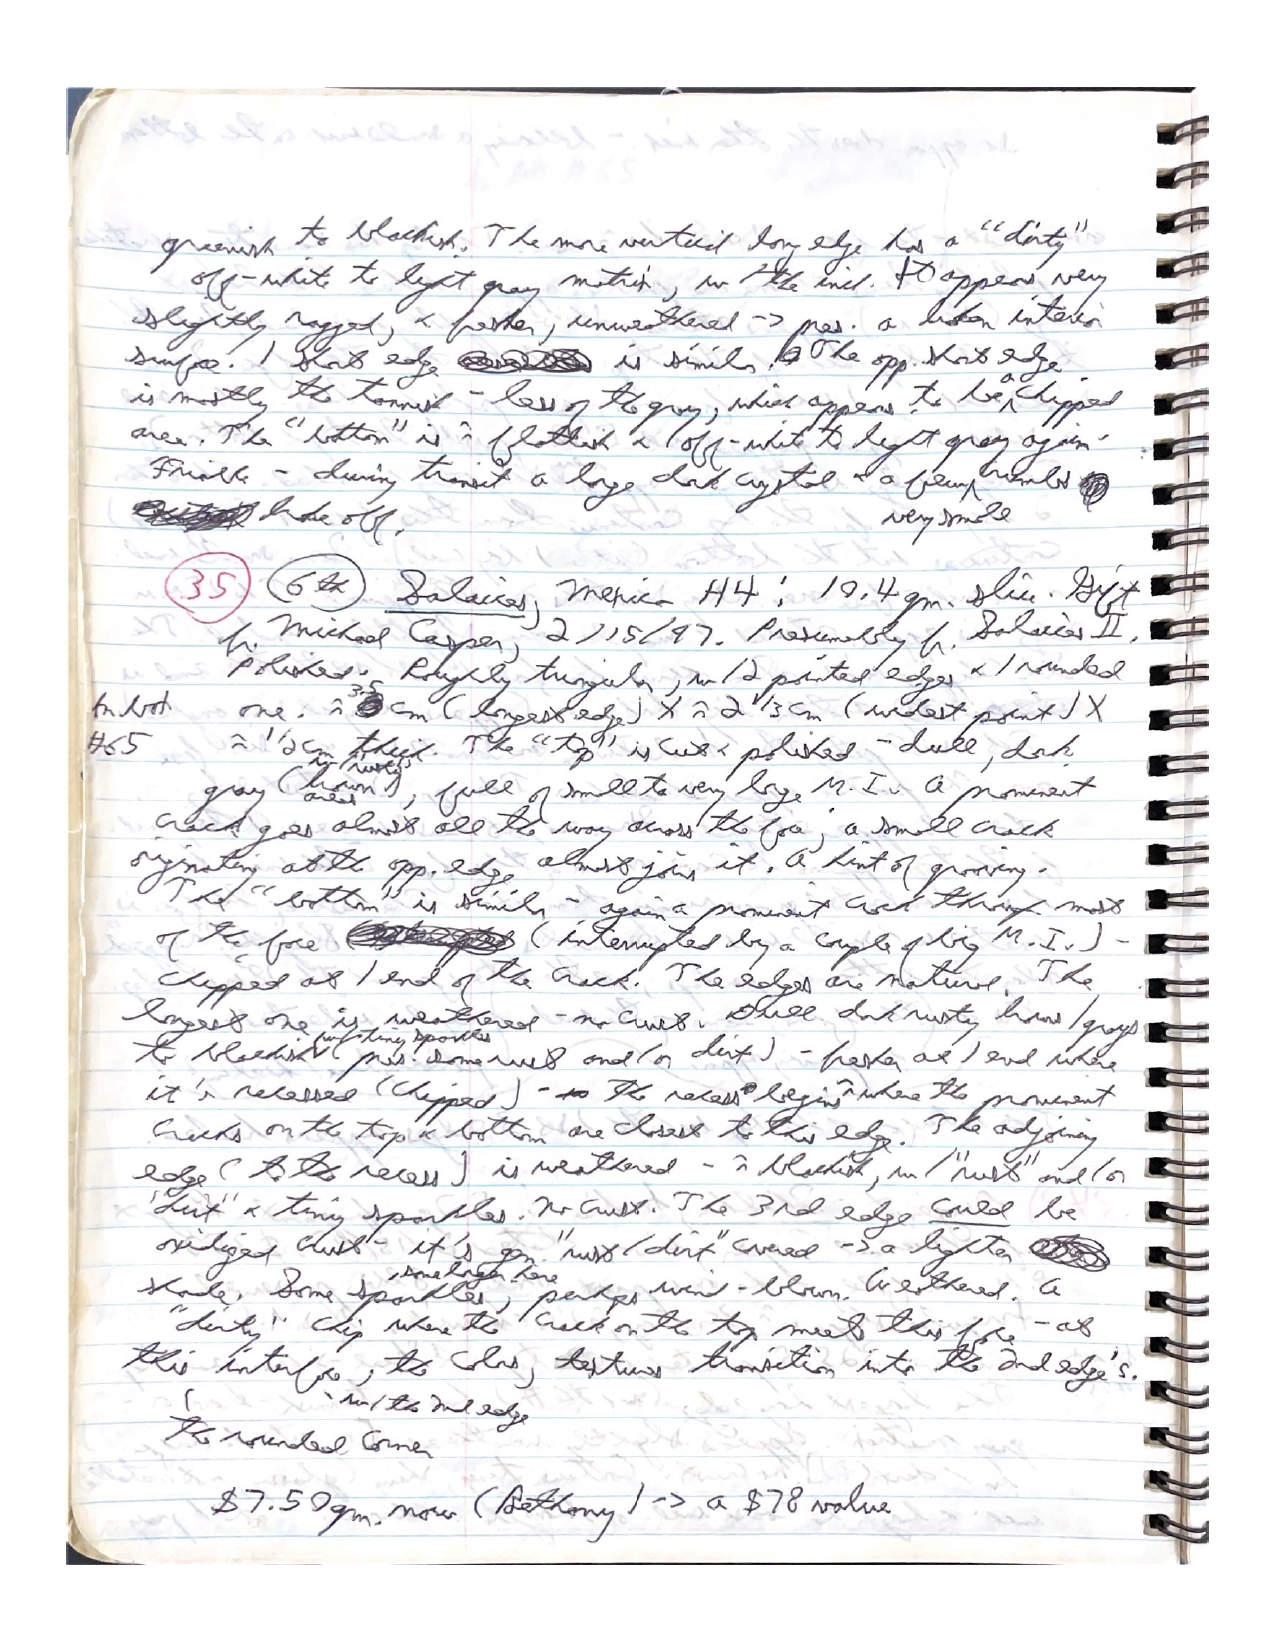 greenish to blackish. The more vertical long edge has a "dirty"
off-white to light gray matrix, w/the incl. It appears very
slightly ragged, & fresher, unweathered -> pres. a broken interior
surface. 1 short edge is similar. The opp. short edge
is mostly the tannish - less of the gray, which appears to be a chipped
area. The "bottom" is ≈ flattish & off-white to light gray again.
Friable - during transit a large dark crystal & a few very small crumbs
broke off.
35 6th Salaices, Mexico H4: 10.4 gm. slice. Gift
fr. Michael Casper, 2/15/97. Presumably fr. Salaices II.
Polished. Roughly triangular, w/2 pointed edges & 1 rounded
one. ≈ 3.5 cm (longest edge) X ≈ 2 1/3 cm (widest point) X
In bot #65
≈ 1/2 cm thick. The "top" is cut & polished - dull, dark
gray (w/"rusty" brown areas), full of small to very large M.I. A prominent
crack goes almost all the way across the face; a small crack
originating at the opp. edge almost joins it. A hint of grooving.
The "bottom" is similar - again a prominent crack through most
of the face (interrupted by a couple of big M.I.) -
chipped at 1 end of the crack. The edges are natural. The
longest one is weathered - no crust. Dull dark rusty brown/grays
to blackish w/tiny sparkles (pres. some rust and/or dirt) - fresher at 1 end where
it's recessed (chipped) - the recess begins ≈ where the prominent
cracks on the top & bottom are closest to this edge. The adjoining
edge (to the recess) is weathered - ≈ blackish, w/"rust" and/or
"dirt" & tiny sparkles. No crust. The 3rd edge could be
oxidized crust - it's gen. "rust/dirt" covered -> a lighter
shade. Some sparkles, some larger here, perhaps wind-blown. Weathered. A
"dirty" chip where the crack on the top meets this face - at
this interface, the colors, textures transition into the 2nd edge's.
- w/the 2nd edge
the rounded corner
$7.50 gm. now (Bethany) -> a $78 value